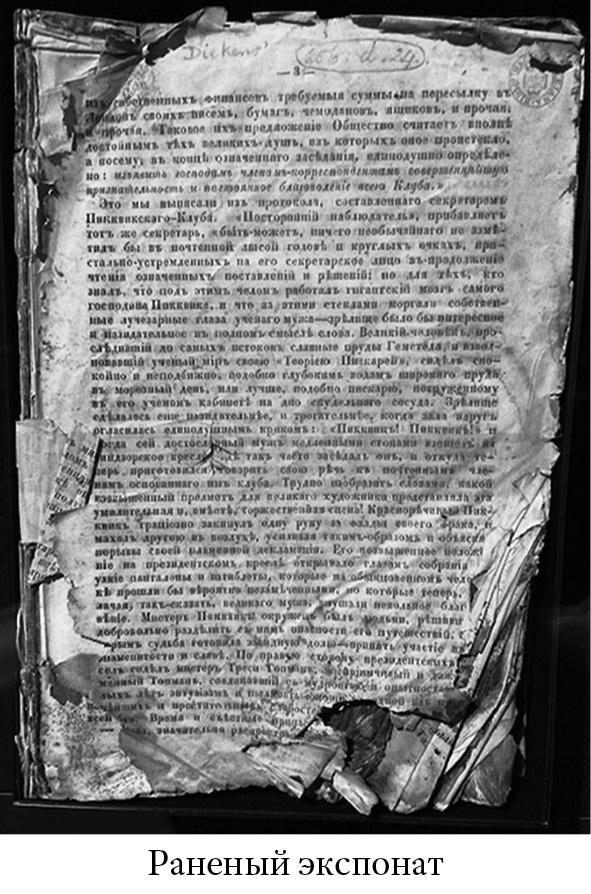 Dickens'
266. d. 24.
— 3 —
изъ собственныхъ финансовъ требуемыя суммы на пересылку въ
Лондонъ своихъ писемъ, бумагъ, чемодановъ, ящиковъ, и прочая,
и прочая. Таковое ихъ предложеніе Общество считаетъ вполнѣ
достойнымъ тѣхъ великихъ душъ, изъ которыхъ оное проистекло,
а посему, въ концѣ означеннаго засѣданія, единодушно опредѣле-
но: изъявить господамъ членамъ-корреспондентамъ совершеннѣйшую
признательность и постоянное благоволеніе всего Клуба.»
Это мы выписали изъ протокола, составленнаго секретаремъ
Пикквикскаго-Клуба. «Посторонній наблюдатель», прибавляетъ
тотъ же секретарь, «быть-можетъ, ничего необычайнаго не замѣ-
тилъ бы въ почтенной лысой головѣ и круглыхъ очкахъ, при-
стально-устремленныхъ на его секретарское лицо въ-продолженіе
чтенія означенныхъ поставленій и рѣшеній; но для тѣхъ, кто
зналъ, что подъ этимъ челомъ работалъ гигантскій мозгъ самого
господина Пикквика, и что за этими стеклами моргали собствен-
ные лучезарные глаза ученаго мужа—зрѣлище было бы интересное
и назидательное въ полномъ смыслѣ слова. Великій-человѣкъ, про-
слѣдившій до самыхъ истоковъ славные пруды Гемстеда, и взвол-
новавшій ученый міръ своею «Теоріею Пискарей», сидѣлъ спо-
койно и неподвижно, подобно глубокимъ водамъ широкаго пруда
въ морозный день, или лучше, подобно пискарю, погруженному
въ его ученомъ кабинетѣ на дно скудельнаго сосуда. Зрѣлище
сдѣлалось еще назидательнѣе, и трогательнѣе, когда зала вдругъ
огласилась единодушнымъ крикомъ: «Пикквикъ! Пикквикъ!» и
когда сей достославный мужъ медленными стопами взошелъ на
виндзорское кресло, гдѣ такъ часто засѣдалъ онъ, и откуда те-
перь приготовился говорить свою рѣчь къ почтеннымъ чле-
намъ основаннаго имъ клуба. Трудно изобразить словами: какой
возвышенный предметъ для великаго художника представляла эта
умилительная и, вмѣстѣ, торжественная сцена! Краснорѣчивый Пик-
квикъ граціозно закинулъ одну руку за фалды своего фрака, и
махалъ другою въ воздухѣ, усиливая такимъ-образомъ и объясняя
порывы своей пламенной декламаціи. Его возвышенное положе
ніе на президентскомъ креслѣ открывало глазамъ собранія
узкіе панталоны и штиблеты, которые на обыкновенномъ чело
кѣ прошли бы вѣроятно незамѣченными, но которые теперь,
лачая, такъ-сказать, великаго мужа, внушали невольное благ
вѣніе. Мистеръ Пикквикъ окруженъ былъ людьми, рѣшивш
добровольно раздѣлить съ нимъ опасности его путешествій, с
рымъ судьба готовила завидную долю—принять участіе въ
знаменитости и славѣ. По правую сторону президентскихъ
селъ сидѣлъ мистеръ Треси Топманъ,
менный Топманъ, соединявшій съ мудростью и опытностью
лыхъ лѣтъ энтузіазмъ и
и простительныхъ
Время и
значительно
Раненый экспонат